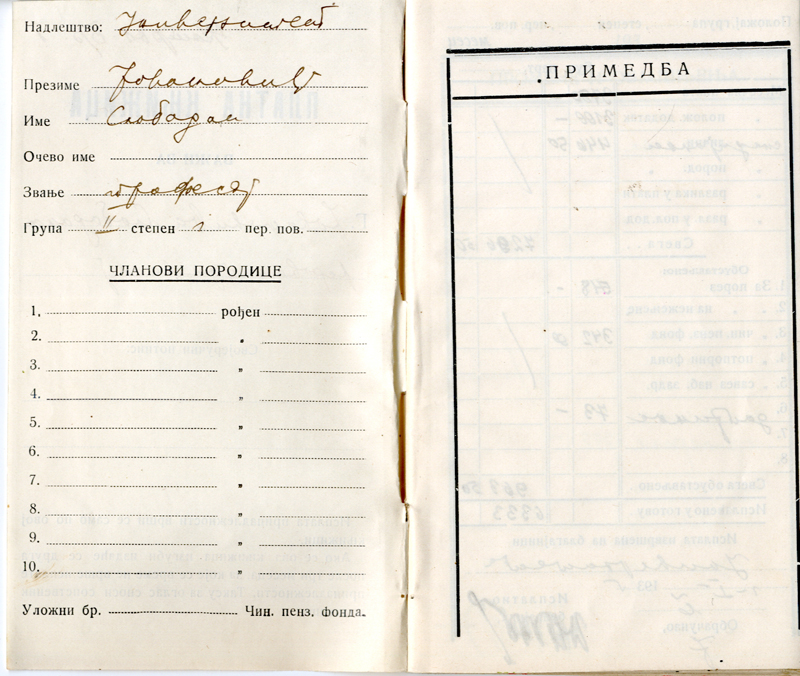 Надлештво: Универзитет
Презиме Јовановић
Име Слободан
Очево име
Звање професор
Група II степен I пер. пов.
ЧЛАНОВИ ПОРОДИЦЕ
1, рођен
2. "
3. "
4. "
5. "
6. "
7. "
8. "
9. "
10. "
Уложни бр. Чин. пенз. фонда.
ПРИМЕДБА